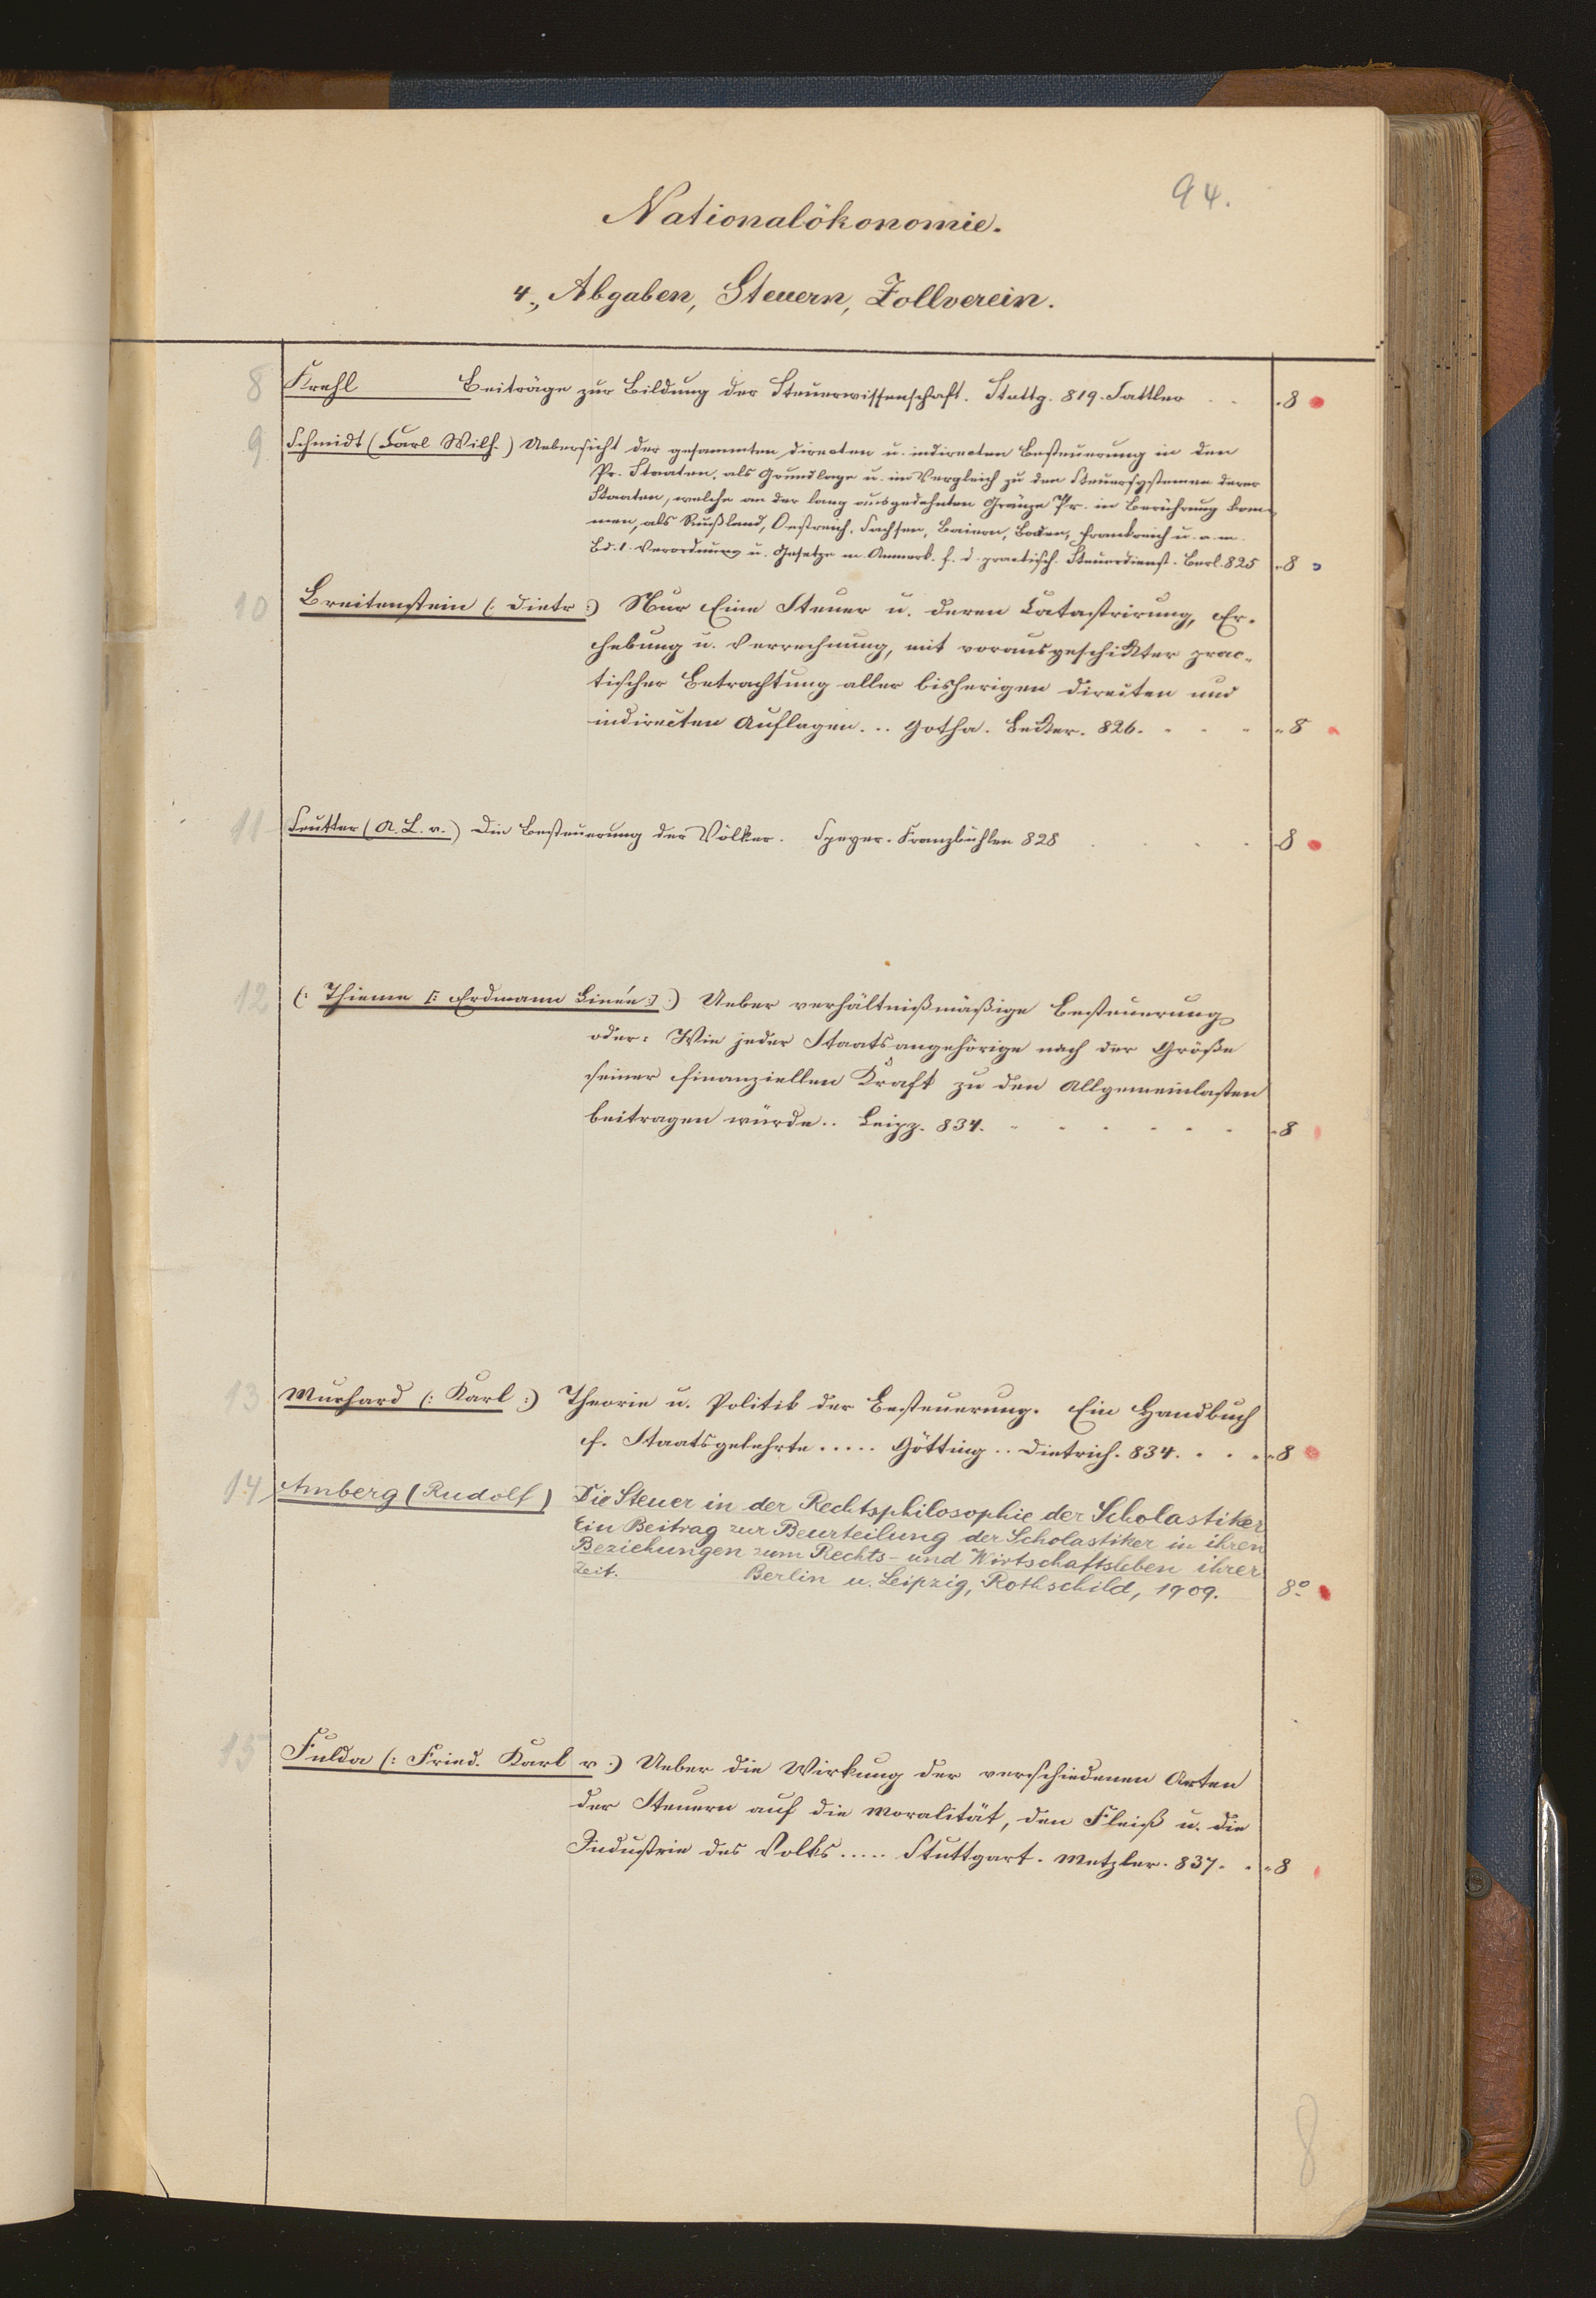 94.
Nationalökonomie.
4., Abgaben, Steuern, Zollverein.
8 Krehl Beiträge zur Bildung der Steuerwissenschaft. Stuttg. 819. Sattler . . . 8
9 Schmidt (Carl Wilh.) Uebersicht der gesammten directen u. indirecten Besteuerung in den
Pr. Staaten, als Grundlage u. im Vergleich zu den Steuersystemen derer
Staaten, welche an der lang ausgedehnten Gränze Pr. in Berührung kom-
men, als Rußland, Oestreich, Sachsen, Baiern, Baden, Frankreich u. a. m.
Bd. 1. Verordnung u. Gesetze m. Anmerk. f. d. practisch. Steuerdienst. Berl. 825 . 8
10 Breitenstein (: Dietr :) Nur Eine Steuer u. deren Catastrirung, Er-
hebung u. Verrechnung, mit vorausgeschickter prac-
tischer Betrachtung aller bisherigen directen und
indirecten Auflagen. .. Gotha. Becker. 826. . . . . 8
11 Seutter (A. L. v.) Die Besteuerung der Völker. Speyer. Franzbühler 828 . . . . 8
12 (: Thieme [: Erdmann Linée :] :) Ueber verhältnißmäßige Besteuerung
oder: Wie jeder Staatsangehörige nach der Größe
seiner finanziellen Kraft zu den Allgemeinlasten
beitragen würde. . Leipz. 834. . . . . . . . 8
13 Murhard (: Karl :) Theorie u. Politik der Besteuerung. Ein Handbuch
f. Staatsgelehrte ..... Götting .. Dietrich. 834. . . . . 8
14 Amberg (Rudolf) Die Steuer in der Rechtsphilosophie der Scholastiker
Ein Beitrag zur Beurteilung der Scholastiker in ihren
Beziehungen zum Rechts- und Wirtschaftsleben ihrer
Zeit. Berlin u. Leipzig, Rothschild, 1909. 8°
15 Fulda (: Fried. Karl v :) Ueber die Wirkung der verschiedenen Arten
der Steuern auf die Moralität, den Fleiß u. die
Industrie des Volks ..... Stuttgart. Metzler. 837. . . 8
8